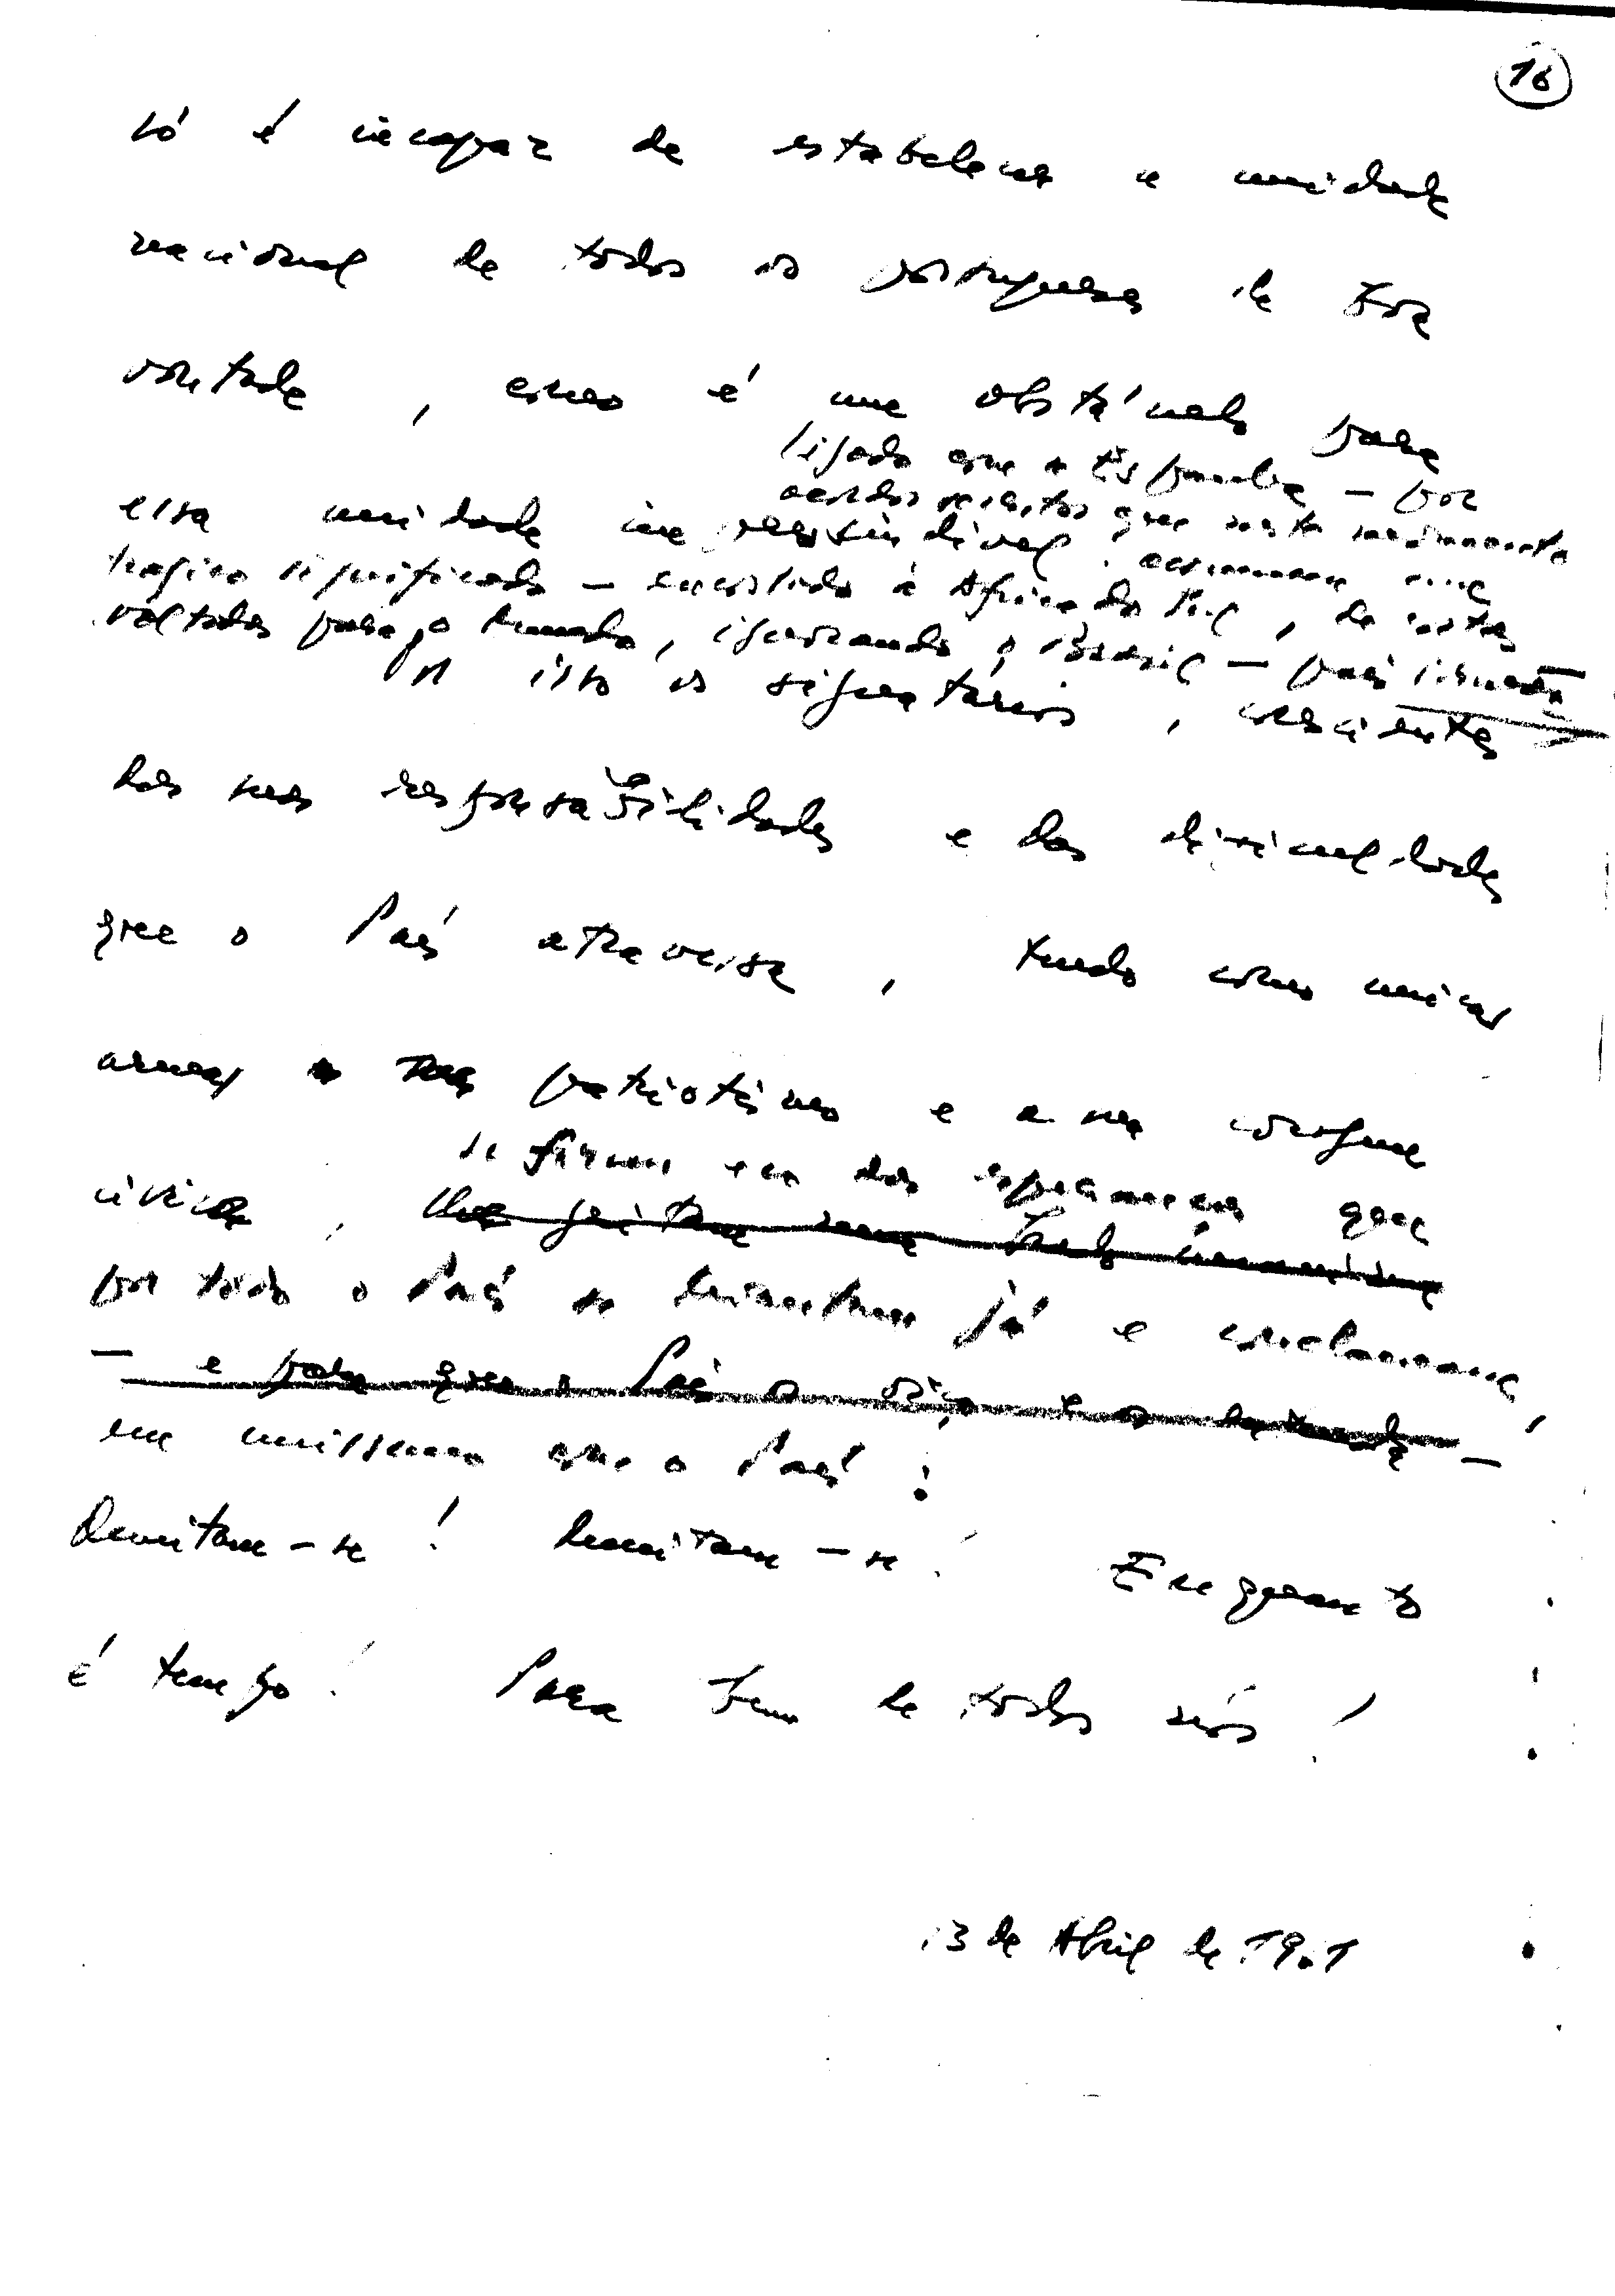 16
só é incapaz de estabelecer a unidade
nacional de todos os portugueses de boa
vontade, como é um obstáculo para
essa unidade imprescindível.
ligado com a Espanha — por
acordos secretos que neste momento assumem um
trágico significado — encostado à África do Sul, de costas
voltadas para o mundo, ignorando o Brasil — país irmão —
Por isso os signatários, conscientes
das suas responsabilidades e das dificuldades
que o País atravessa, tendo como únicas
armas o seu patriotismo e a sua coragem
cívica,
se firmam em dos que
por todo o País se levantam já e conclamam,
— e para que o País o oiça e o entenda —
em uníssono com o País:
Demitam-se! Demitam-se! Enquanto
é tempo! Para bem de todos nós!
13 de Abril de 19.1